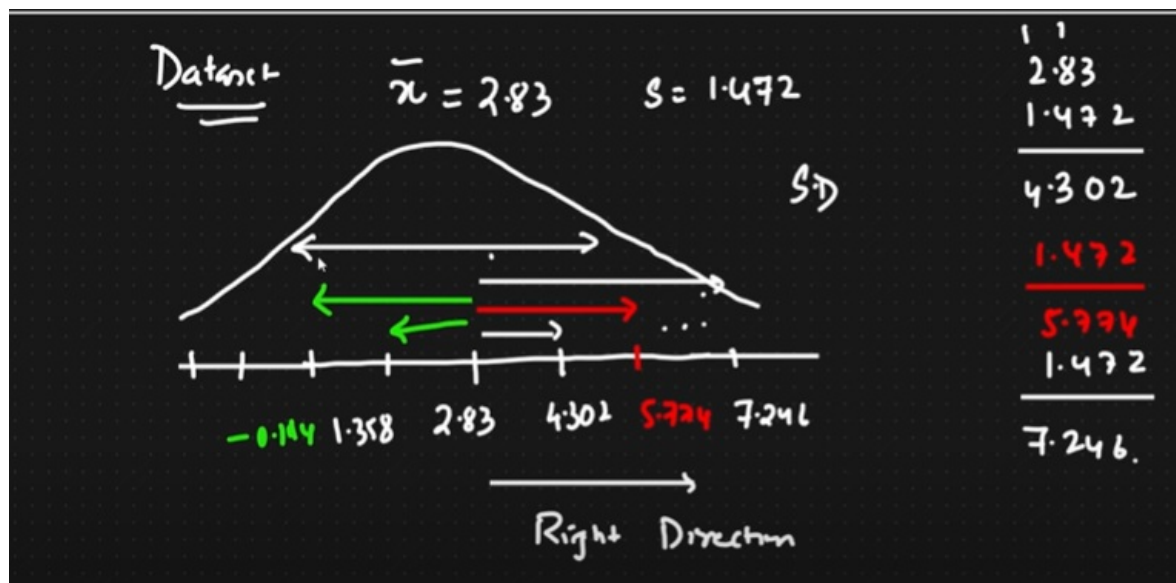 Dataset x̄ = 2.83 S = 1.472
S.D
-0.144 1.358 2.83 4.302 5.774 7.246
Right Direction
1 1
2.83
1.472
4.302
1.472
5.774
1.472
7.246.